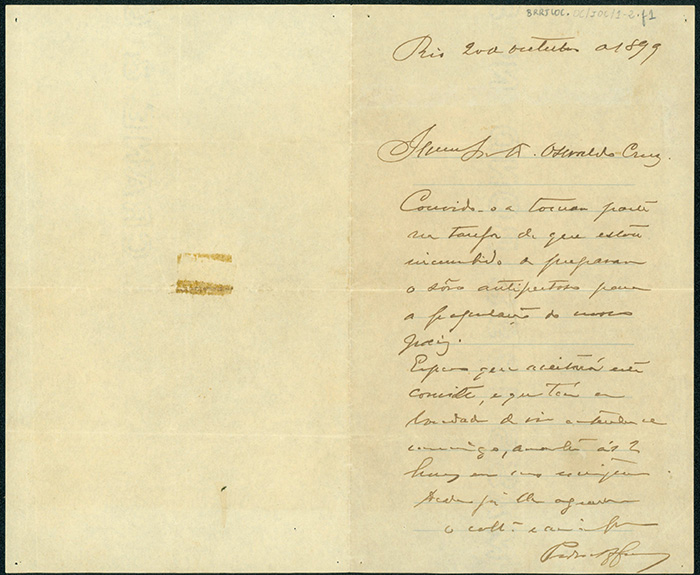 BRRJCOC.OC/JOC/1-2.f1
Rio 20 de outubro de 1899
Illmo Sr. Dr. Oswaldo Cruz.
Convido-o a tomar parte
na tarefa de que estou
incumbido de preparar
o sôro antipestoso para
a população do nosso
paiz.
Espero que aceitará este
convite, e que terá a
bondade de vir entender-se
commigo, amanhã ás 2
horas em meu escriptorio
Desde já lhe agradece
o coll. e
Pedro Affonso